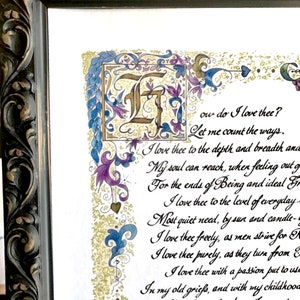 How do I love thee?
Let me count the ways.
I love thee to the depth and breadth and
My soul can reach, when feeling out of
For the ends of Being and ideal
I love thee to the level of everyday
Most quiet need, by sun and candle-
I love thee freely, as men strive for
I love thee purely, as they turn from
I love thee with a passion put to use
In my old griefs, and with my childhood